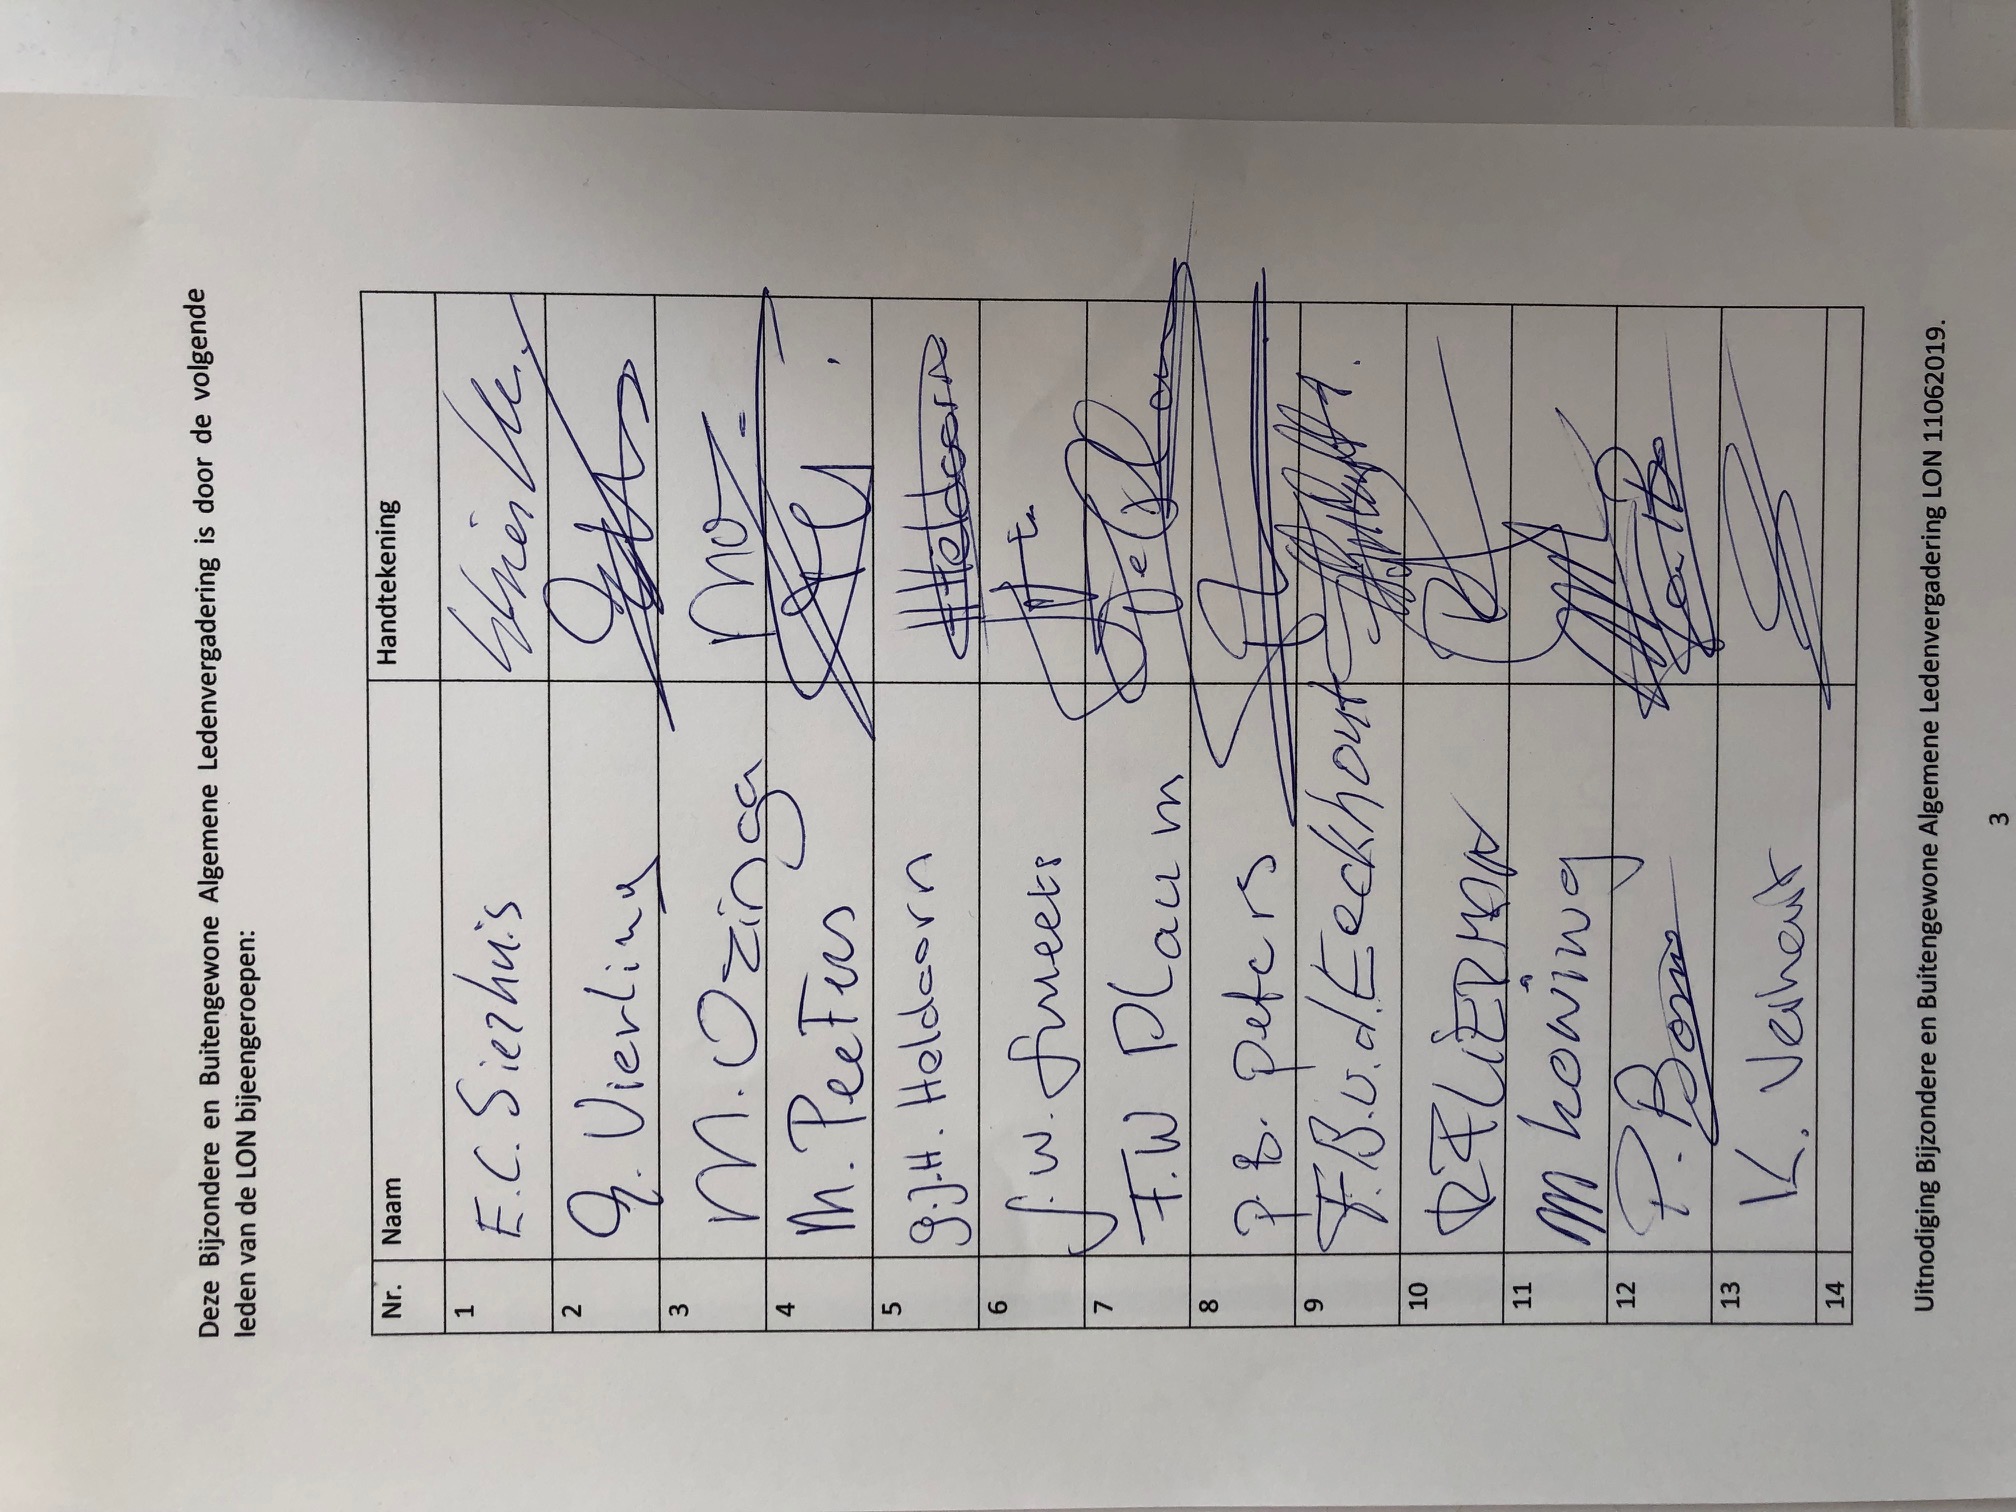 Deze Bijzondere en Buitengewone Algemene Ledenvergadering is door de volgende
leden van de LON bijeengeroepen:
Nr. Naam Handtekening
1 E.C. Sierhuis
2 G. Vierling
3 M. Ozinga
4 M. Peeters
5 G.J.H. Heldoorn Heldoorn
6 J.W. Smeets
7 F.W Plaum
8 P.B. Peters
9 F.B.v.d.Eeckhout
10
11 M Koning
12 P. Bom
13 K.
14
Uitnodiging Bijzondere en Buitengewone Algemene Ledenvergadering LON 11062019.
3